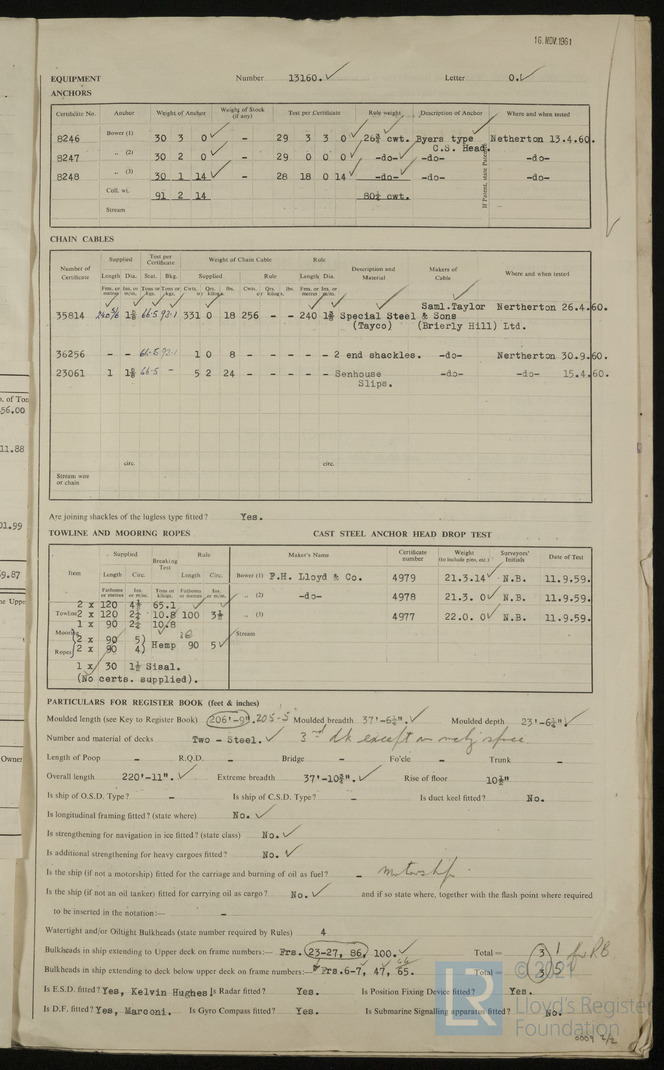 16. NOV. 1961
EQUIPMENT Number 13160. Letter O.
ANCHORS
Certificate No. Anchor Weight of Anchor Weight of Stock (if any) Test per Certificate Rule weight Description of Anchor Where and when tested
8246 Bower (1) 30 3 0 - 29 3 3 0 26¾ cwt. Byers type Netherton 13.4.60.
C.S. Head.
8247 „ (2) 30 2 0 - 29 0 0 0 -do- -do- -do-
8248 „ (3) 30 1 14 - 28 18 0 14 -do- -do- -do-
Coll. wt. 91 2 14 80¼ cwt.
Stream
If Patent, state Patent
CHAIN CABLES
Number of Certificate Supplied Test per Certificate Weight of Chain Cable Rule Description and Material Makers of Cable Where and when tested
Length Dia. Stat. Bkg. Supplied Rule Length Dia.
Fms. or metres Ins. or m/m. Tons or kgs. Tons or kgs. Cwts. Qrs. lbs. Cwts. Qrs. lbs. Fms. or metres Ins. or m/m.
Saml.Taylor Nertherton 26.4.60.
35814 331 0 18 256 - - 240 Special Steel & Sons
(Tayco) (Brierly Hill) Ltd.
36256 - - 66·5 93·1 1 0 8 - - - - - 2 end shackles. -do- Nertherton 30.9.60.
23061 1 66·5 - 5 2 24 - - - - - Senhouse -do- -do- 15.4.60.
Slips.
circ. circ.
Stream wire or chain
Are joining shackles of the lugless type fitted? Yes.
TOWLINE AND MOORING ROPES CAST STEEL ANCHOR HEAD DROP TEST
Item Supplied Breaking Test Rule Maker's Name Certificate number Weight (to include pins, etc.) Surveyors' Initials Date of Test
Length Circ. Length Circ.
Fathoms or metres Ins. or m/m. Tons or kilogs. Fathoms or metres Ins. or m/m.
Bower (1) F.H. Lloyd & Co. 4979 21.3.14 N.B. 11.9.59.
„ (2) -do- 4978 21.3. 0 N.B. 11.9.59.
„ (3) 4977 22.0. 0 N.B. 11.9.59.
Stream
2 x 120 4½ 65.1
Towline 2 x 120 2¼ 10.8 100 3½
1 x 90 2¼ 10.8
Mooring Ropes 2 x 90 5)
2 x 90 4) Hemp 90 5
1 x 30 1½ Sisal.
(No certs. supplied).
PARTICULARS FOR REGISTER BOOK (feet & inches)
Moulded length (see Key to Register Book) 206'-9". 205·5 Moulded breadth 37'-6¼". Moulded depth 23'-6¼".
Number and material of decks Two - Steel. 3rd dk except in mchy space
Length of Poop - R.Q.D. - Bridge - Fo'cle - Trunk -
Overall length 220'-11". Extreme breadth 37'-10¾". Rise of floor 10½"
Is ship of O.S.D. Type? - Is ship of C.S.D. Type? - Is duct keel fitted? No.
Is longitudinal framing fitted? (state where) No.
Is strengthening for navigation in ice fitted? (state class) No.
Is additional strengthening for heavy cargoes fitted? No.
Is the ship (if not a motorship) fitted for the carriage and burning of oil as fuel? - motorship.
Is the ship (if not an oil tanker) fitted for carrying oil as cargo? No. and if so state where, together with the flash point where required
to be inserted in the notation:— -
Watertight and/or Oiltight Bulkheads (state number required by Rules) 4
Bulkheads in ship extending to Upper deck on frame numbers:— Frs. 23-27, 86, 100. Total = 3 1 for RB
Bulkheads in ship extending to deck below upper deck on frame numbers:— Frs.6-7, 47, 65. Total = 3 5
Is E.S.D. fitted? Yes, Kelvin Hughes. Is Radar fitted? Yes. Is Position Fixing Device fitted? Yes.
Is D.F. fitted? Yes, Marconi. Is Gyro Compass fitted? Yes. Is Submarine Signalling apparatus fitted? No.
LR © 2021 Lloyd's Register Foundation
0009 2/2
56.00
11.88
01.99
9.87
Owner